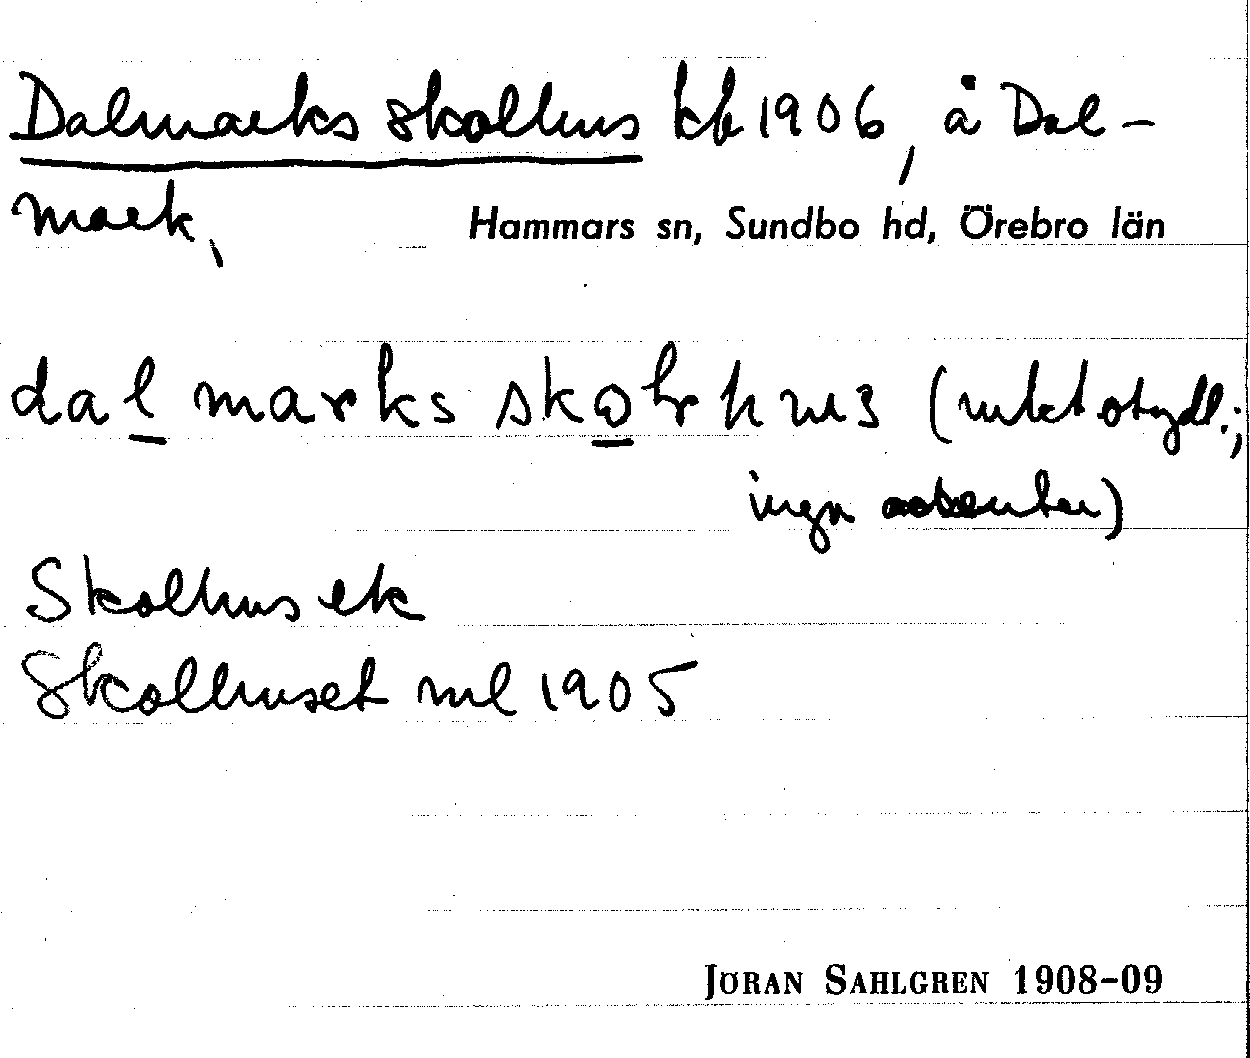 Dalmarks skolhus kb 1906, å Dal-
mark,
Hammars sn, Sundbo hd, Örebro län
dal marks skolrhus (mkt otydl.;
inga accenter)
Skolhus ek
Skolhuset ml 1905
JÖRAN SAHLGREN 1908-09